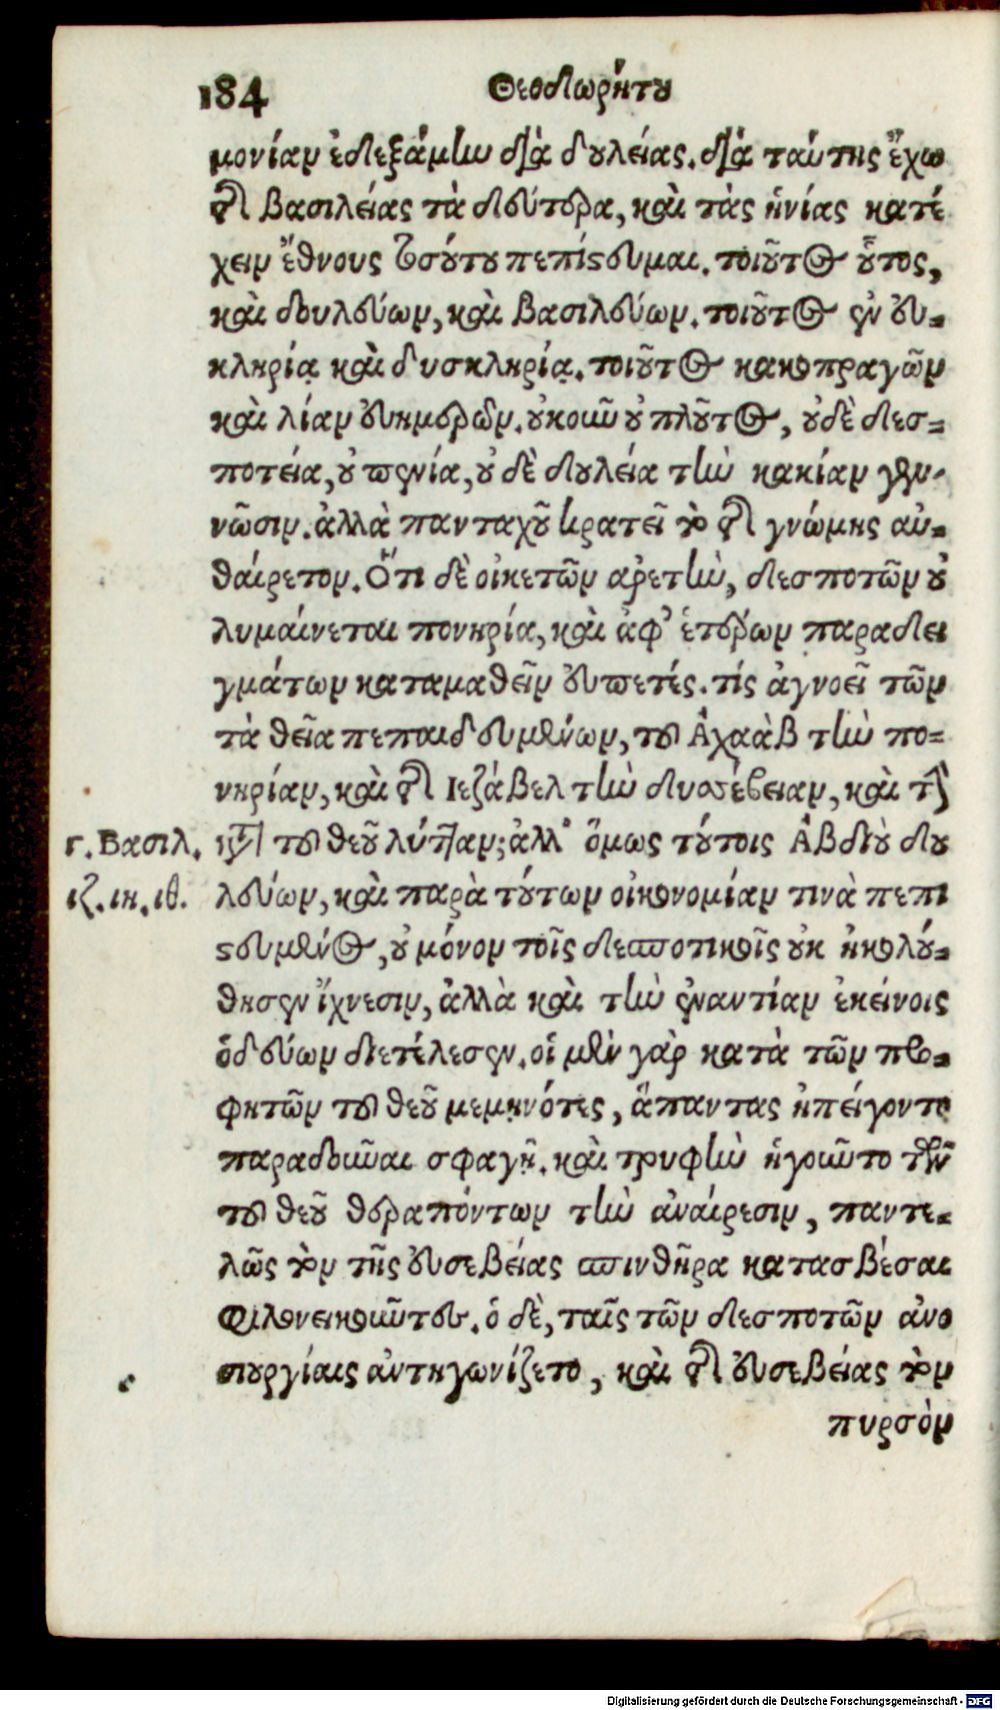 184 Θεοδωρήτου
μονίαν ἐδεξάμην διὰ δουλείας. διὰ ταύτης ἔχω
τῆς βασιλείας τὰ δεύτερα, καὶ τὰς ἡνίας κατέ
χειν ἔθνους τοσούτου πεπίστευμαι. τοιοῦτος οὗτος,
καὶ δουλεύων, καὶ βασιλεύων. τοιοῦτος ἐν εὐ-
κληρίᾳ καὶ δυσκληρίᾳ. τοιοῦτος κακοπραγῶν
καὶ λίαν εὐημερῶν. οὐκοῦν οὐ πλοῦτος, οὐδὲ δεσ-
ποτεία, οὐ πενία, οὐδὲ δουλεία τὴν κακίαν γεν-
νῶσιν. ἀλλὰ πανταχοῦ κρατεῖ τὸ τῆς γνώμης αὐ-
θαίρετον. Ὅτι δὲ οἰκετῶν ἀρετὴν, δεσποτῶν οὐ
λυμαίνεται πονηρία, καὶ ἀφ' ἑτέρων παραδει
γμάτων καταμαθεῖν εὐπετές. τίς ἀγνοεῖ τῶν
τὰ θεῖα πεπαιδευμένων, τοῦ Ἀχαὰβ τὴν πο-
νηρίαν, καὶ τῆς Ἰεζάβελ τὴν δυσσέβειαν, καὶ τὴν
γ. Βασιλ. κατὰ τοῦ θεοῦ λύτταν; ἀλλ' ὅμως τούτοις Ἀβδιοὺ δου
ιζ. ιη. ιθ. λεύων, καὶ παρὰ τούτων οἰκονομίαν τινὰ πεπι
στευμένος, οὐ μόνον τοῖς δεσποτικοῖς οὐκ ἠκολού-
θησεν ἴχνεσιν, ἀλλὰ καὶ τὴν ἐναντίαν ἐκείνοις
ὁδεύων διετέλεσεν. οἱ μὲν γὰρ κατὰ τῶν προ-
φητῶν τοῦ θεοῦ μεμηνότες, ἅπαντας ἠπείγοντο
παραδοῦναι σφαγῇ. καὶ τρυφὴν ἡγοῦντο τῶν
τοῦ θεοῦ θεραπόντων τὴν ἀναίρεσιν, παντε-
λῶς τὸν τῆς εὐσεβείας σπινθῆρα κατασβέσαι
φιλονεικοῦντες. ὁ δὲ, ταῖς τῶν δεσποτῶν ἀνο
σιουργίαις ἀντηγωνίζετο, καὶ τῆς εὐσεβείας τὸν
πυρσὸν
Digitalisierung gefördert durch die Deutsche Forschungsgemeinschaft - DFG